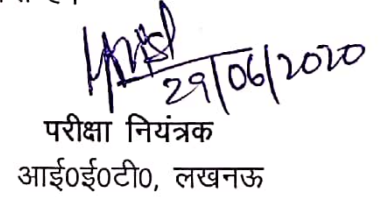 29/06/2020
परीक्षा नियंत्रक
आई0ई0टी0, लखनऊ